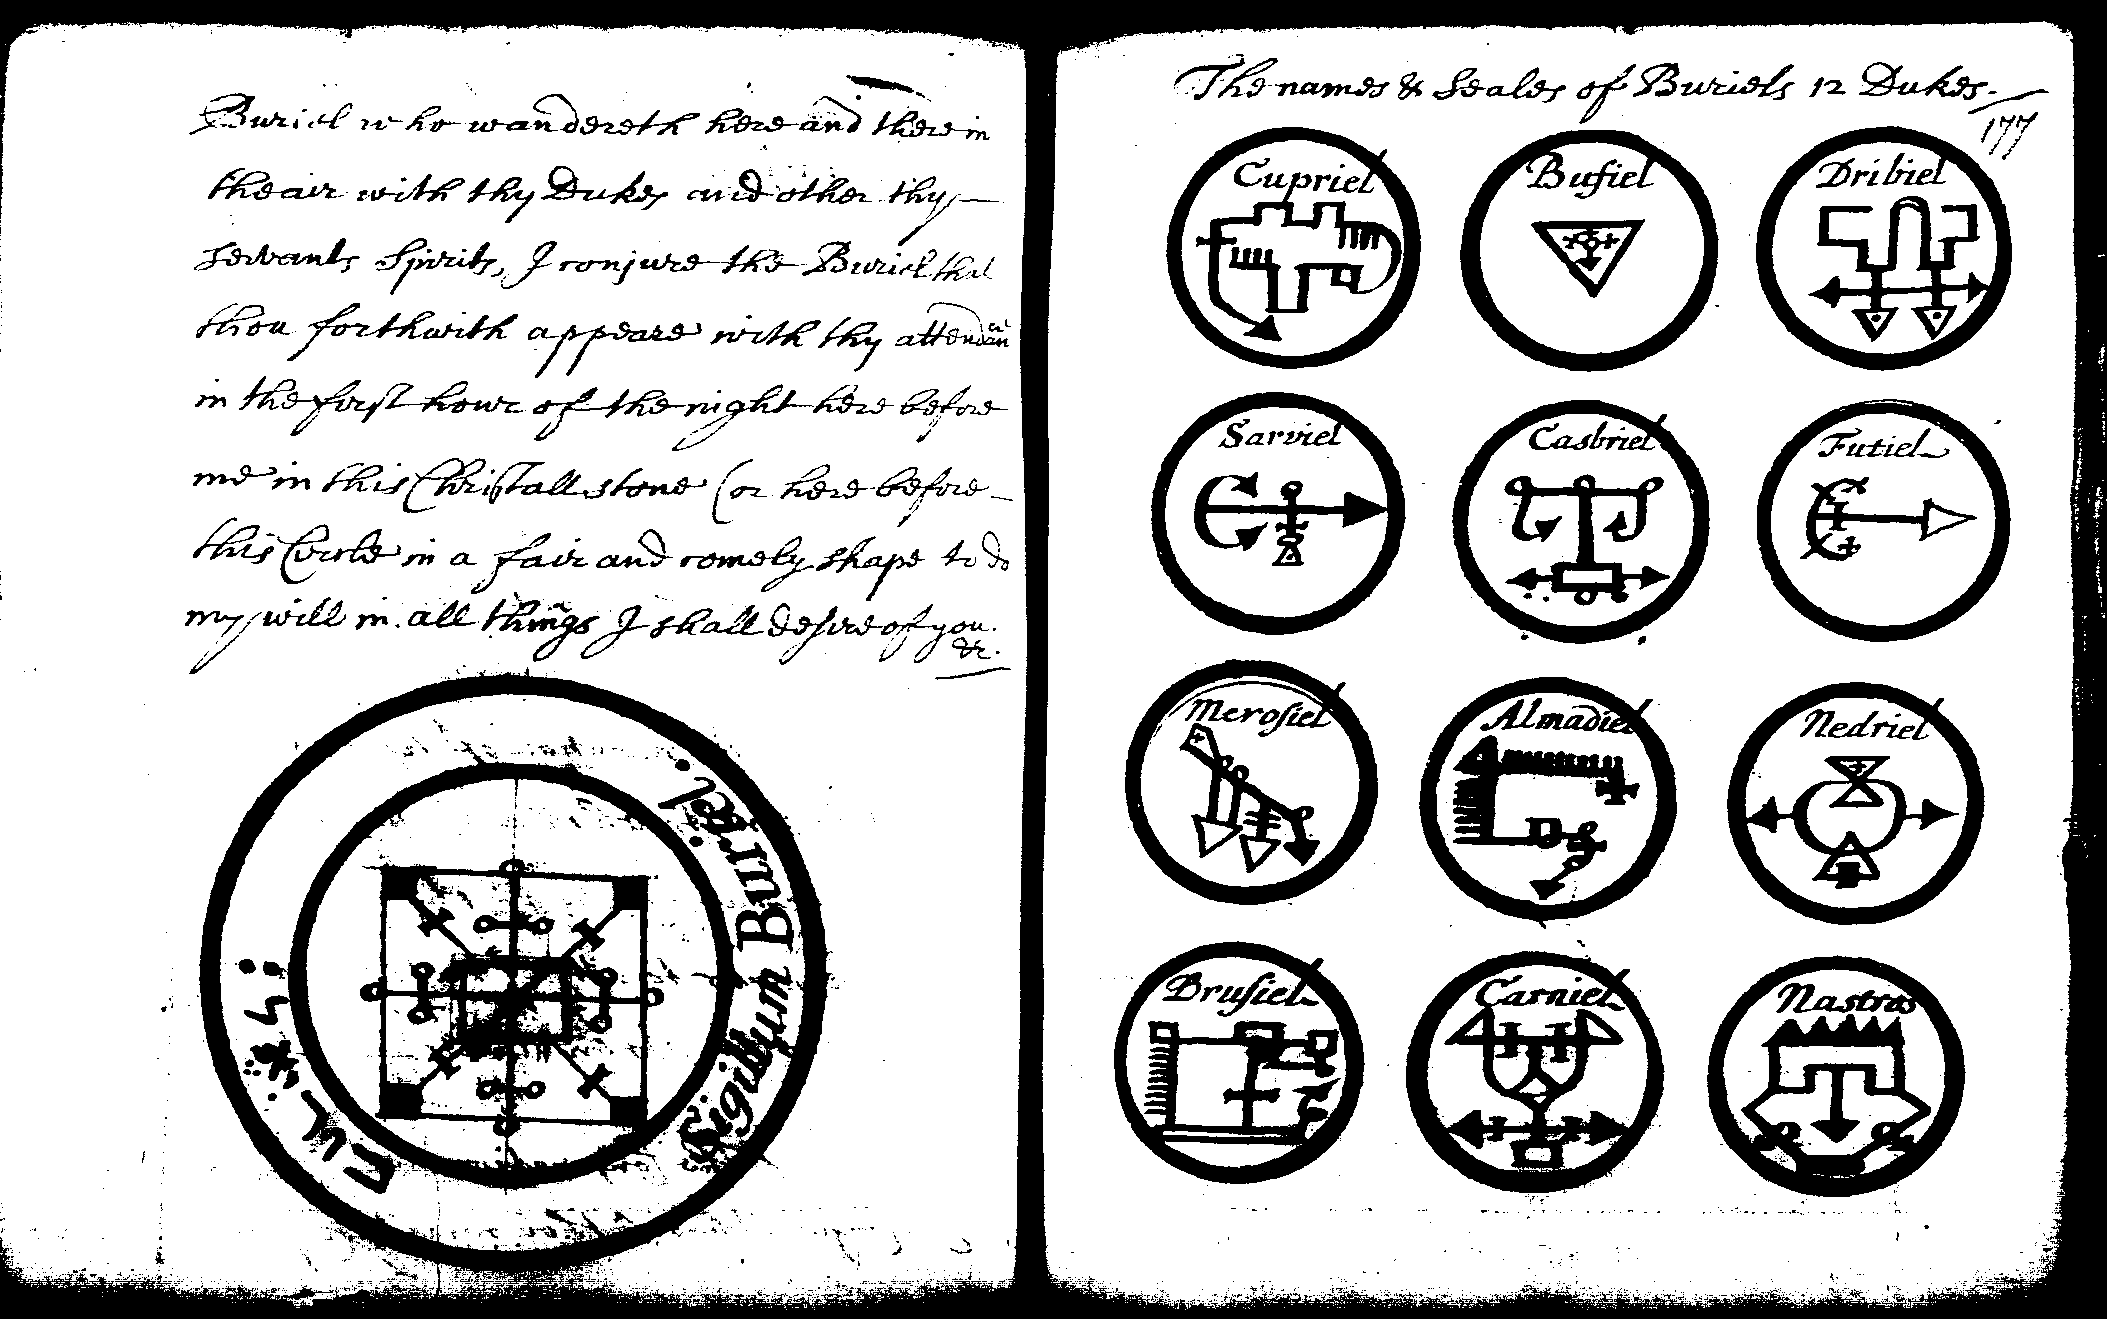 Buriel who wandereth here and there in
the air with thy Dukes and other thy
servants Spirits, I conjure the Buriel that
thou forthwith appeare with thy attendan
in the first hour of the night here before
me in this Christall stone (or here before
this Circle in a fair and comely shape to do
my will in all things I shall desire of you.
&c.
Sigillum Buriel.
The names & Seales of Buriels 12 Dukes.
177
Cupriel
Busiel
Dribiel
Sarviel
Casbriel
Futiel
Merosiel
Almadiel
Nedriel
Brusiel
Carniel
Nastros